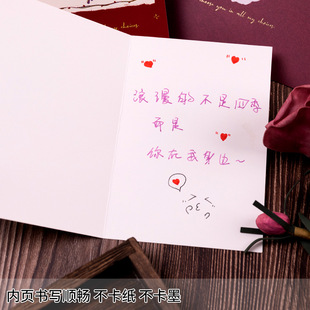 浪漫的不是四季
而是
你在我身边~
内页书写顺畅 不卡纸 不卡墨